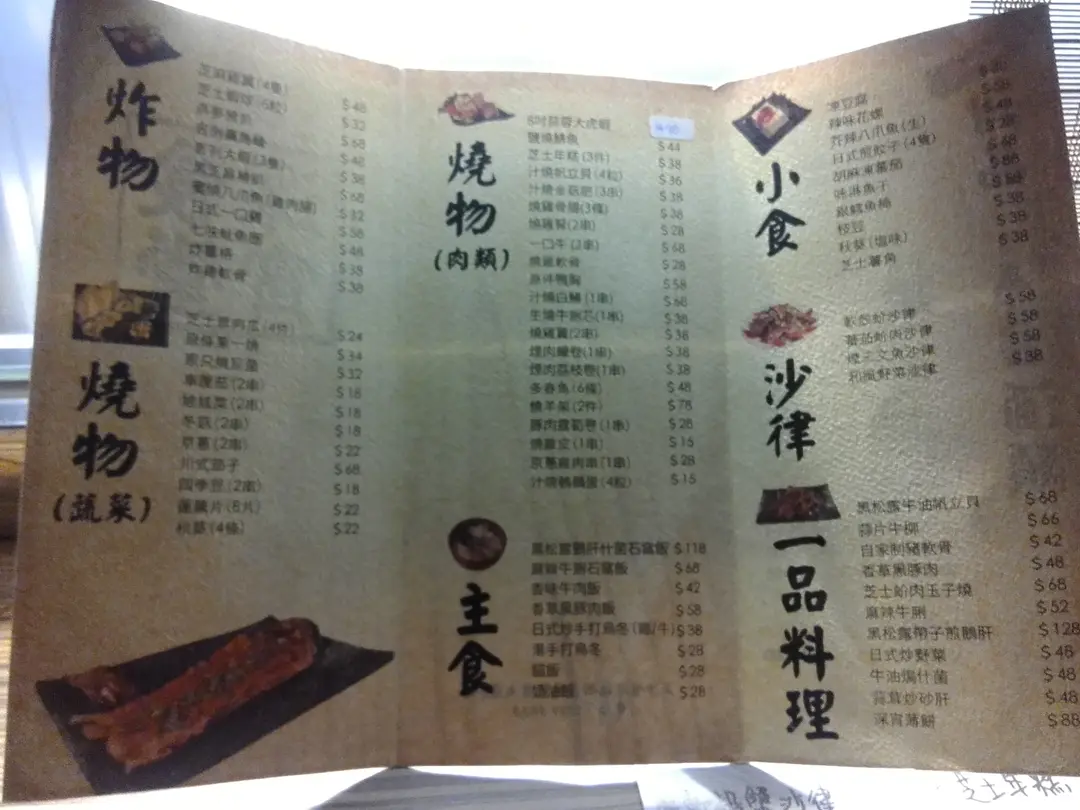 炸物
芝麻雞翼(4隻) $48
芝士蝦球(6粒) $32
$68
$48
吉列大蝦(3隻) $38
$68
$32
日式一口雞 $58
七味魷魚鬚 $48
炸薯條 $38
炸雞軟骨 $38
燒物
(蔬菜)
芝士意肉瓜(4件) $24
$34
$32
車厘茄(2串) $18
娃娃菜(2串) $18
冬菇(2串) $18
京蔥(2串) $22
川式茄子 $68
四季豆(2串) $18
蓮藕片(8片) $22
秋葵(4條) $22
燒物
(肉類)
8吋蒜蓉大虎蝦
鹽燒鯖魚 $44
芝士年糕(3件) $38
汁燒帆立貝(4粒) $36
汁燒金菇肥(3串) $38
燒雞骨腸(3條) $38
燒雞腎(2串) $28
一口牛(2串) $68
燒雞軟骨 $28
原件鴨胸 $58
汁燒白鱔(1串) $68
生燒牛脷芯(1串) $38
燒雞翼(2串) $38
煙肉鰻卷(1串) $38
煙肉荔枝卷(1串) $38
多春魚(6條) $48
燒羊架(2件) $78
豚肉露筍卷(1串) $28
燒雞皮(1串) $15
京蔥雞肉串(1串) $28
汁燒鵪鶉蛋(4粒) $15
主食
黑松露鵝肝什菌石窩飯 $118
麻辣牛脷石窩飯 $68
香味牛肉飯 $42
香草黑豚肉飯 $58
日式炒手打烏冬(雞/牛) $38
湯手打烏冬 $28
$28
$28
小食
凍豆腐
辣味花螺 $58
芥辣八爪魚(生) $48
日式煎餃子(4隻) $28
胡麻凍蕃茄 $48
味淋魚干 $88
銀鱈魚柳 $38
枝豆 $38
秋葵(塩味) $38
芝士薯角
沙律
軟殼蟹沙律 $58
蕃茄蚧肉沙律 $58
煙三文魚沙律 $58
和風野菜沙律 $38
一品料理
黑松露牛油帆立貝 $68
蒜片牛柳 $66
自家制豬軟骨 $42
香草黑豚肉 $48
芝士蚧肉玉子燒 $68
麻辣牛脷 $52
黑松露帶子煎鵝肝 $128
日式炒野菜 $48
牛油焗什菌 $48
蒜茸炒砂肝 $48
深宵薄餅 $88
芝士年糕